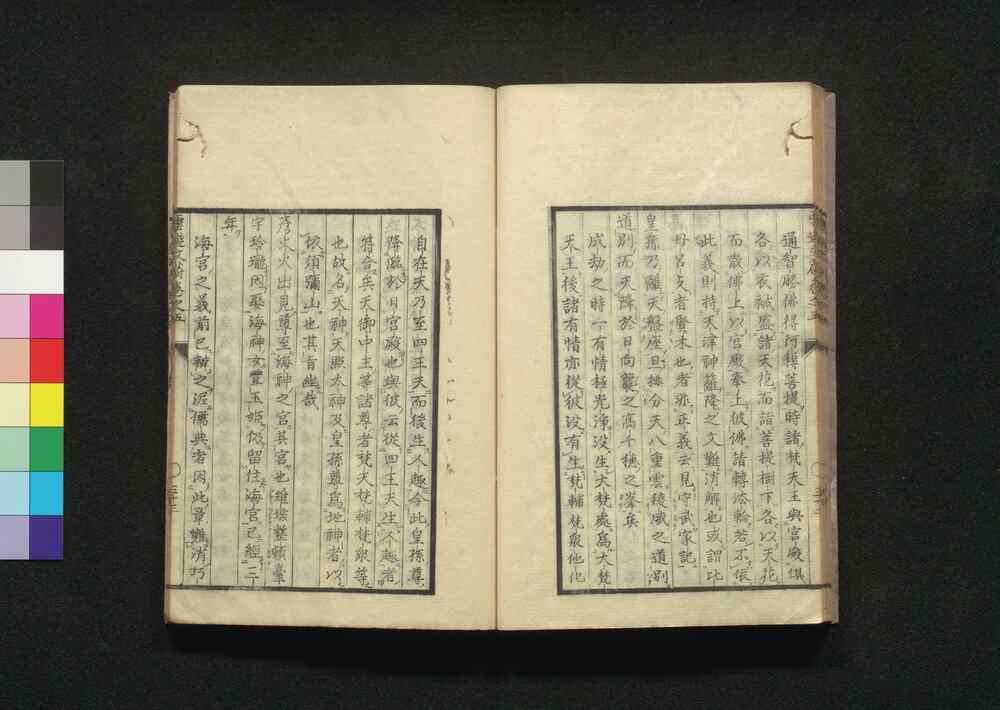 通智勝佛得阿耨菩提時諸梵天王與宮殿俱
各以衣祴盛諸天花而詣菩提樹下各以天花
而散佛上以宮殿奉上彼佛請轉法輪若不依
此義則持天津神籬降之文難消解也或謂此
皇孫乃離天盤座且排分天八重雲稜威之道別
道別而天降於日向襲之高千穗之峯矣
成劫之時一有情極光淨沒生大梵處爲大梵
天王後諸有情亦從彼沒有生梵輔梵衆他化
自在天乃至四王天而後生人趣今此皇孫尊
降臨於日宮殿也與彼云從四王天生人趣者
符合矣天御中主等諸尊者梵天梵輔梵衆等
也故名天神天照太神及皇孫尊爲地神者以
依須彌山也其旨幽哉
彦火火出見尊至海神之宮其宮也雉堞整頓臺
宇玲瓏因娶海神女豐玉姬仍留住海宮已經三
年
海宮之義前已辨之泥儒典者因此章難消巧